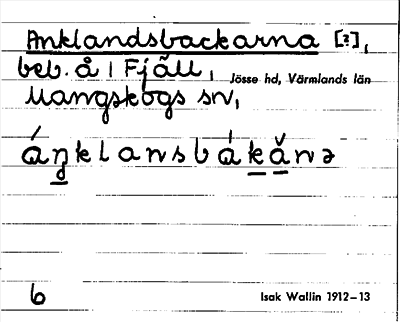 Anklandsbackarna [?],
beb. å 1 Fjäll,
Jösse hd, Värmlands län
Mangskogs sn,
áŋklansbákǎnə
6
Isak Wallin 1912–13